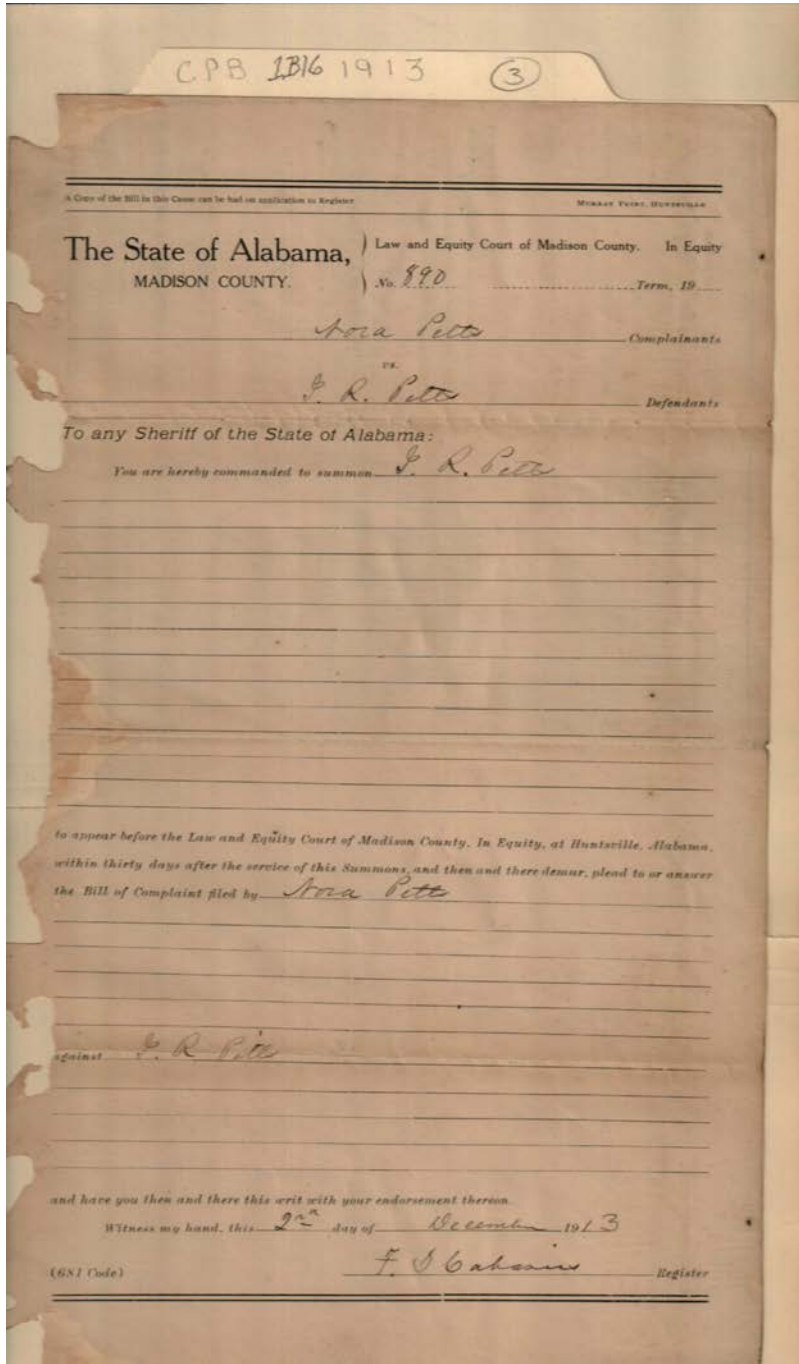 CPB 1B16 1913 (3)
A Copy of the Bill in this Cause can be had on application to Register MURRAY PRINT, HUNTSVILLE
The State of Alabama, ) Law and Equity Court of Madison County. In Equity
MADISON COUNTY. ) No. 890 Term, 19
Nora Petts Complainants
vs.
R. Petts Defendants
To any Sheriff of the State of Alabama:
You are hereby commanded to summon R. Petts
to appear before the Law and Equity Court of Madison County, In Equity, at Huntsville, Alabama,
within thirty days after the service of this Summons, and then and there demur, plead to or answer
the Bill of Complaint filed by Nora Petts
against R Petts
and have you then and there this writ with your endorsement thereon.
Witness my hand, this 2nd day of December 1913
(681 Code) F. D Register